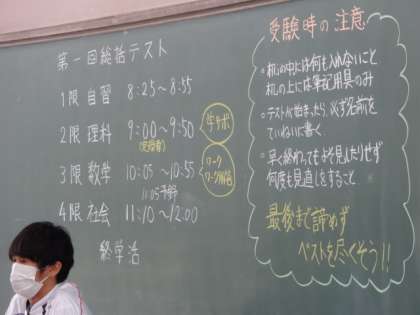 第一回総括テスト
1限 自習 8:25~8:55
2限 理科 9:00~9:50
3限 数学 10:05~10:55
11:05予鈴
4限 社会 11:10~12:00
終学活
学サポ
ワーク
受験時の注意
・机の中には何も入れないこと
机の上には筆記用具のみ
・テストが始まったら必ず名前を
ていねいに書く
・早く終わってもよそ見したりせず
何度も見直しをすること
最後まで諦めず
ベストを尽くそう!!